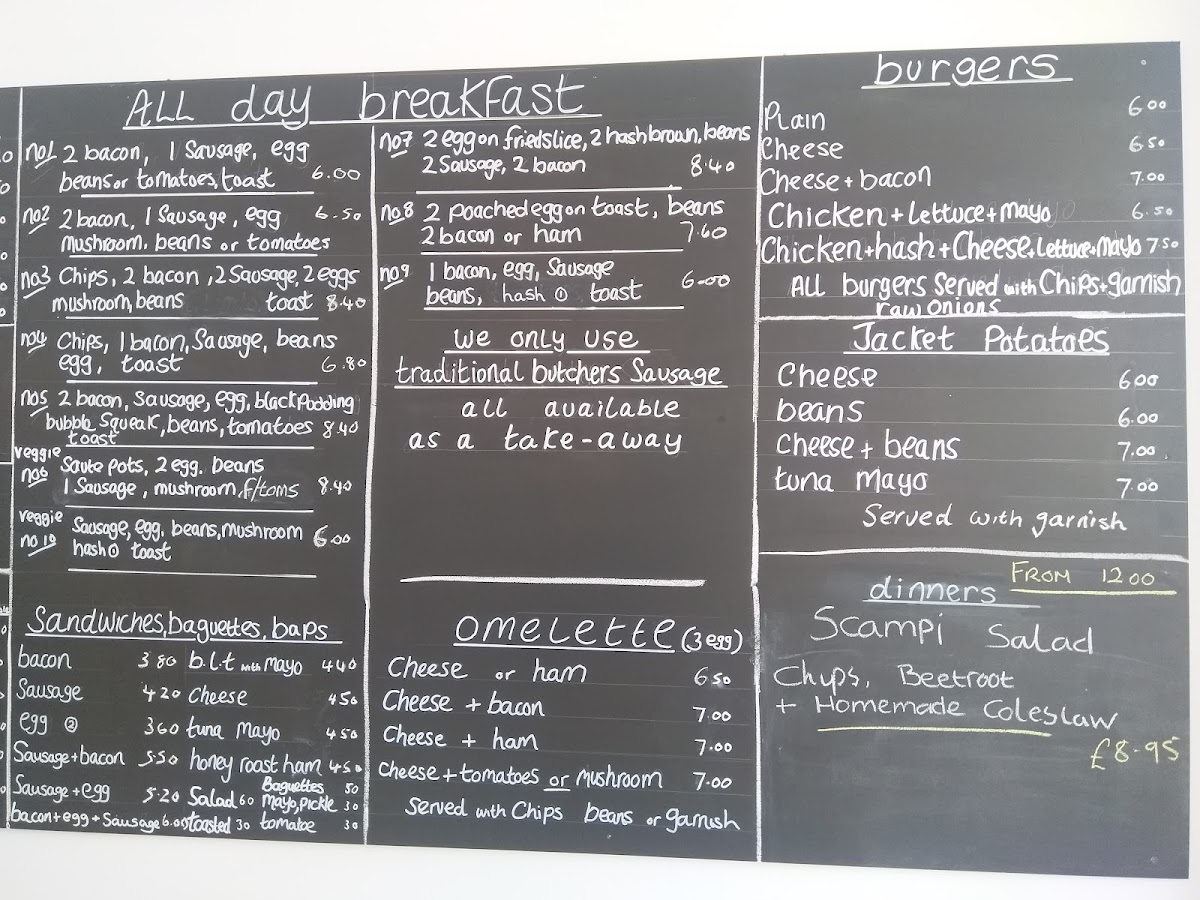 ALL day breakfast
no1 2 bacon, 1 Sausage, egg
beans or tomatoes, toast 6.00
no2 2 bacon, 1 Sausage, egg 6.50
mushroom. beans or tomatoes
no3 Chips, 2 bacon, 2 Sausage, 2 eggs
mushroom, beans toast 8.40
no4 Chips, 1 bacon, Sausage, beans
egg, toast 6.80
no5 2 bacon, Sausage, egg, black Pudding
bubble Squeak, beans, tomatoes 8.40
toast
veggie
no6 Saute pots, 2 egg. beans
1 Sausage, mushroom, f/toms 8.40
veggie
no 10 Sausage, egg. beans, mushroom 6.00
hash ① toast
no7 2 egg on friedslice, 2 hash brown, beans
2 Sausage, 2 bacon 8.40
no8 2 Poached egg on toast, beans
2 bacon or ham 7.60
no9 1 bacon, egg, Sausage
beans, hash ① toast 6.00
we only use
traditional butchers Sausage
all available
as a take-away
Sandwiches, baguettes, baps
bacon 3 80
Sausage 4 20
egg ② 3 60
Sausage + bacon 5.50
Sausage + egg 5.20
bacon + egg + Sausage 6.00
b.l.t with Mayo 4 40
Cheese 4 50
tuna Mayo 4 50
honey roast ham 4 50
Baguettes 50
Salad 60 Mayo, Pickle 30
toasted 30 tomatoe 30
omelette (3 egg)
Cheese or ham 6 50
Cheese + bacon 7.00
Cheese + ham 7.00
Cheese + tomatoes or mushroom 7.00
Served with Chips beans or garnish
burgers
Plain 6 00
Cheese 6 50
Cheese + bacon 7.00
Chicken + Lettuce + Mayo 6.50
Chicken + hash + Cheese + Lettuce + Mayo 7 50
ALL burgers Served with Chips + garnish
raw onions
Jacket Potatoes
Cheese 6 00
beans 6.00
Cheese + beans 7.00
tuna mayo 7.00
Served with garnish
FROM 12 00
dinners
Scampi Salad
Chips, Beetroot
+ Homemade Coleslaw
£8.95